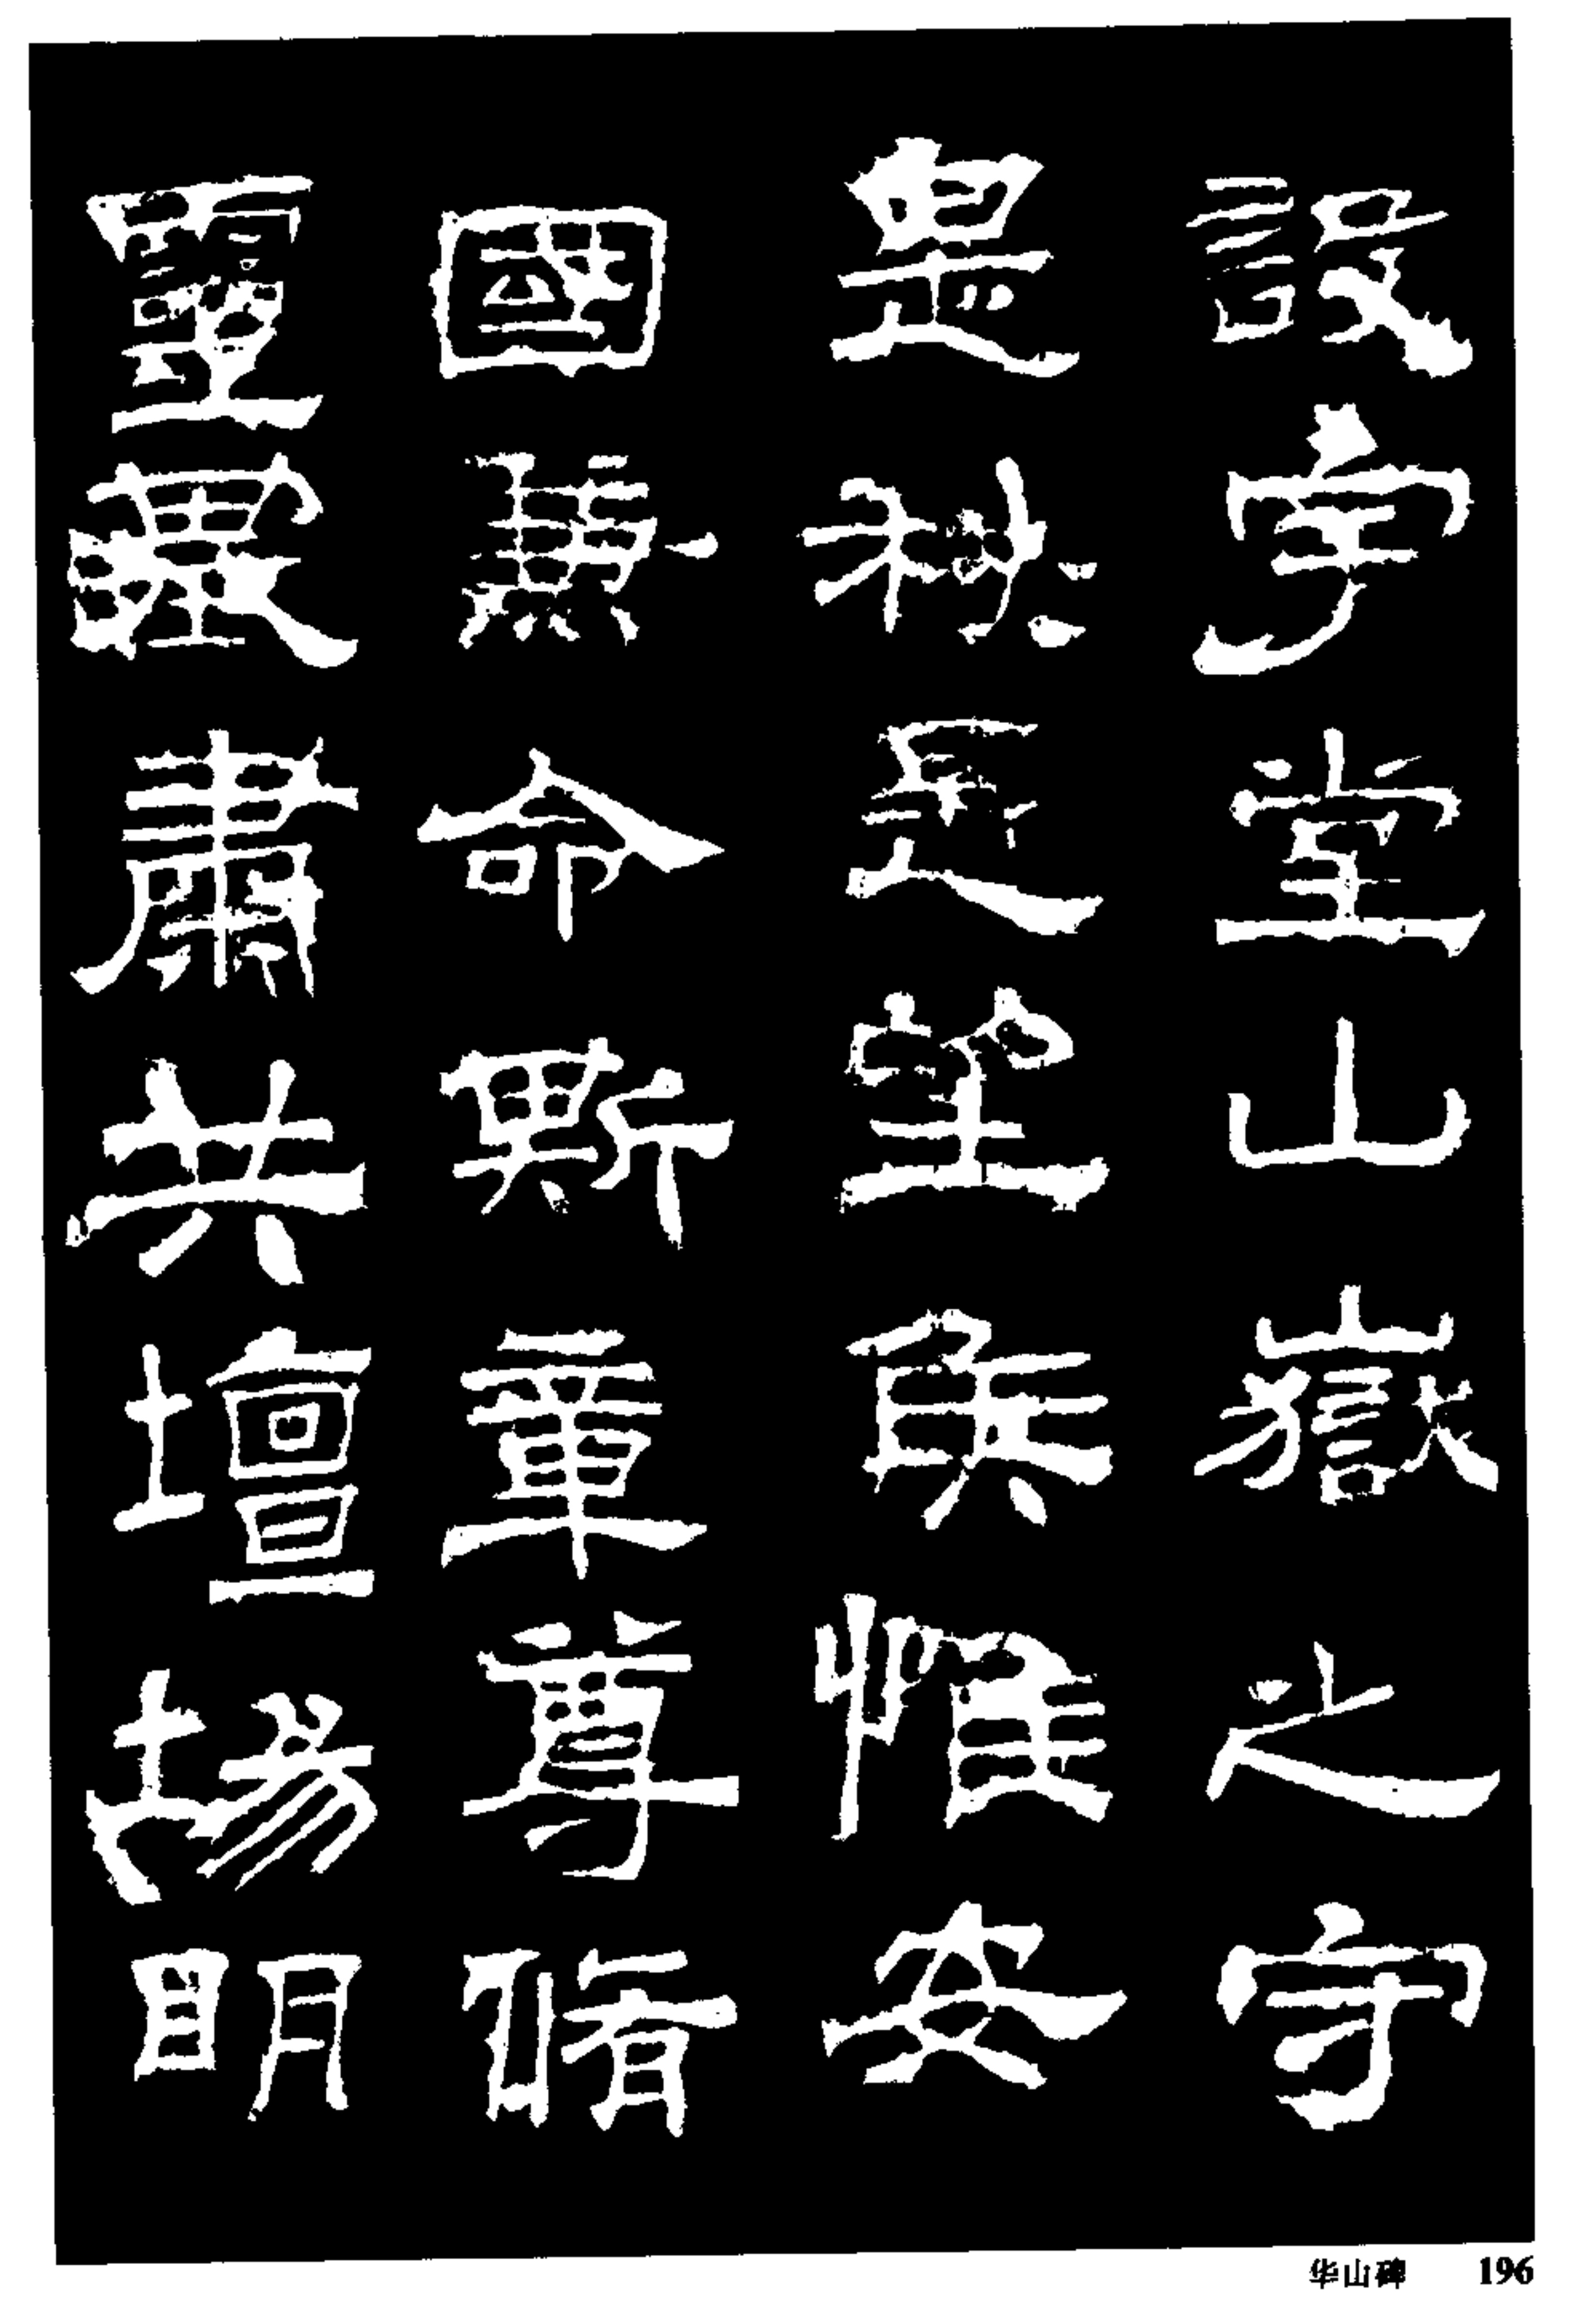 設宇堂山嶽之守
是秋望惟安
國命斯華尊脩
靈殿肅共壇場明
华山碑 196